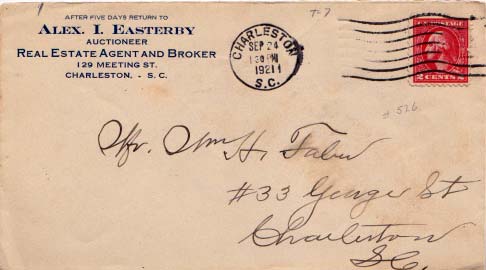 AFTER FIVE DAYS RETURN TO
ALEX. I. EASTERBY
AUCTIONEER
REAL ESTATE AGENT AND BROKER
129 MEETING ST.
CHARLESTON, - S. C.
T-7
CHARLESTON
SEP 24
1 30 PM
1921
S.C.
2 CENTS 2
# 526
Mr. Wm H. Faber
#33 George St
Charleston
S.C.